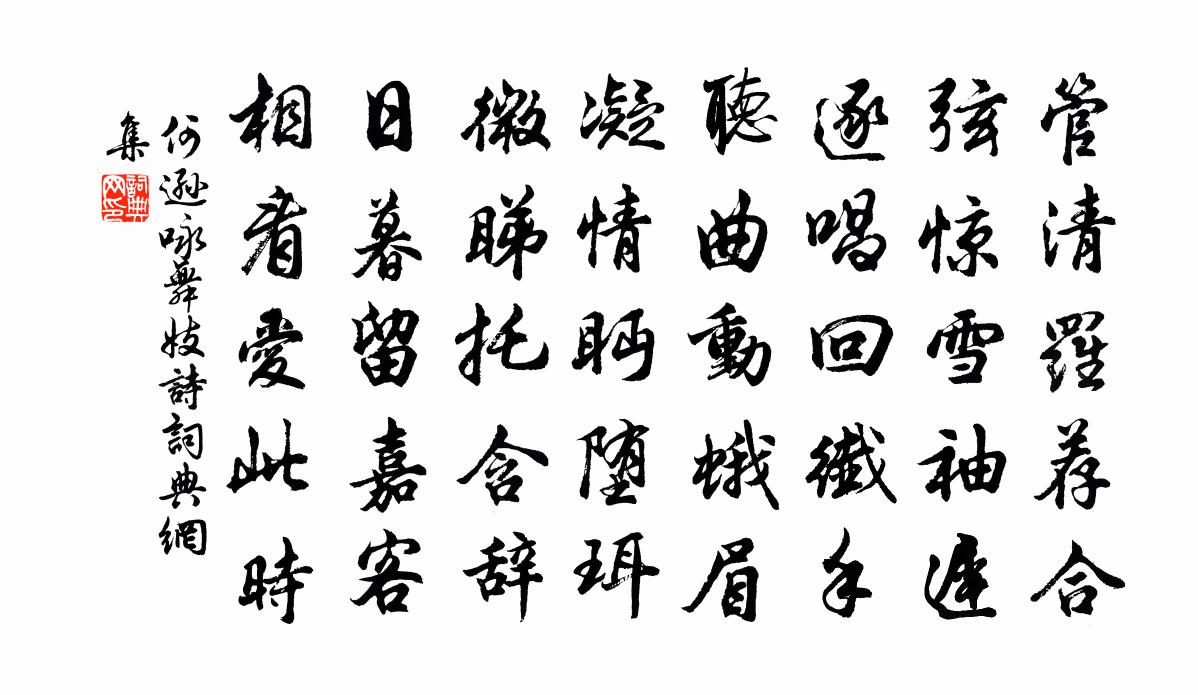 管清羅荐合
弦惊雪袖遲
逐唱回纖手
聽曲動蛾眉
凝情眄堕珥
微睇托含辞
日暮留嘉客
相看愛此時
何遜咏舞妓詩詞典網
集
詞典
网印